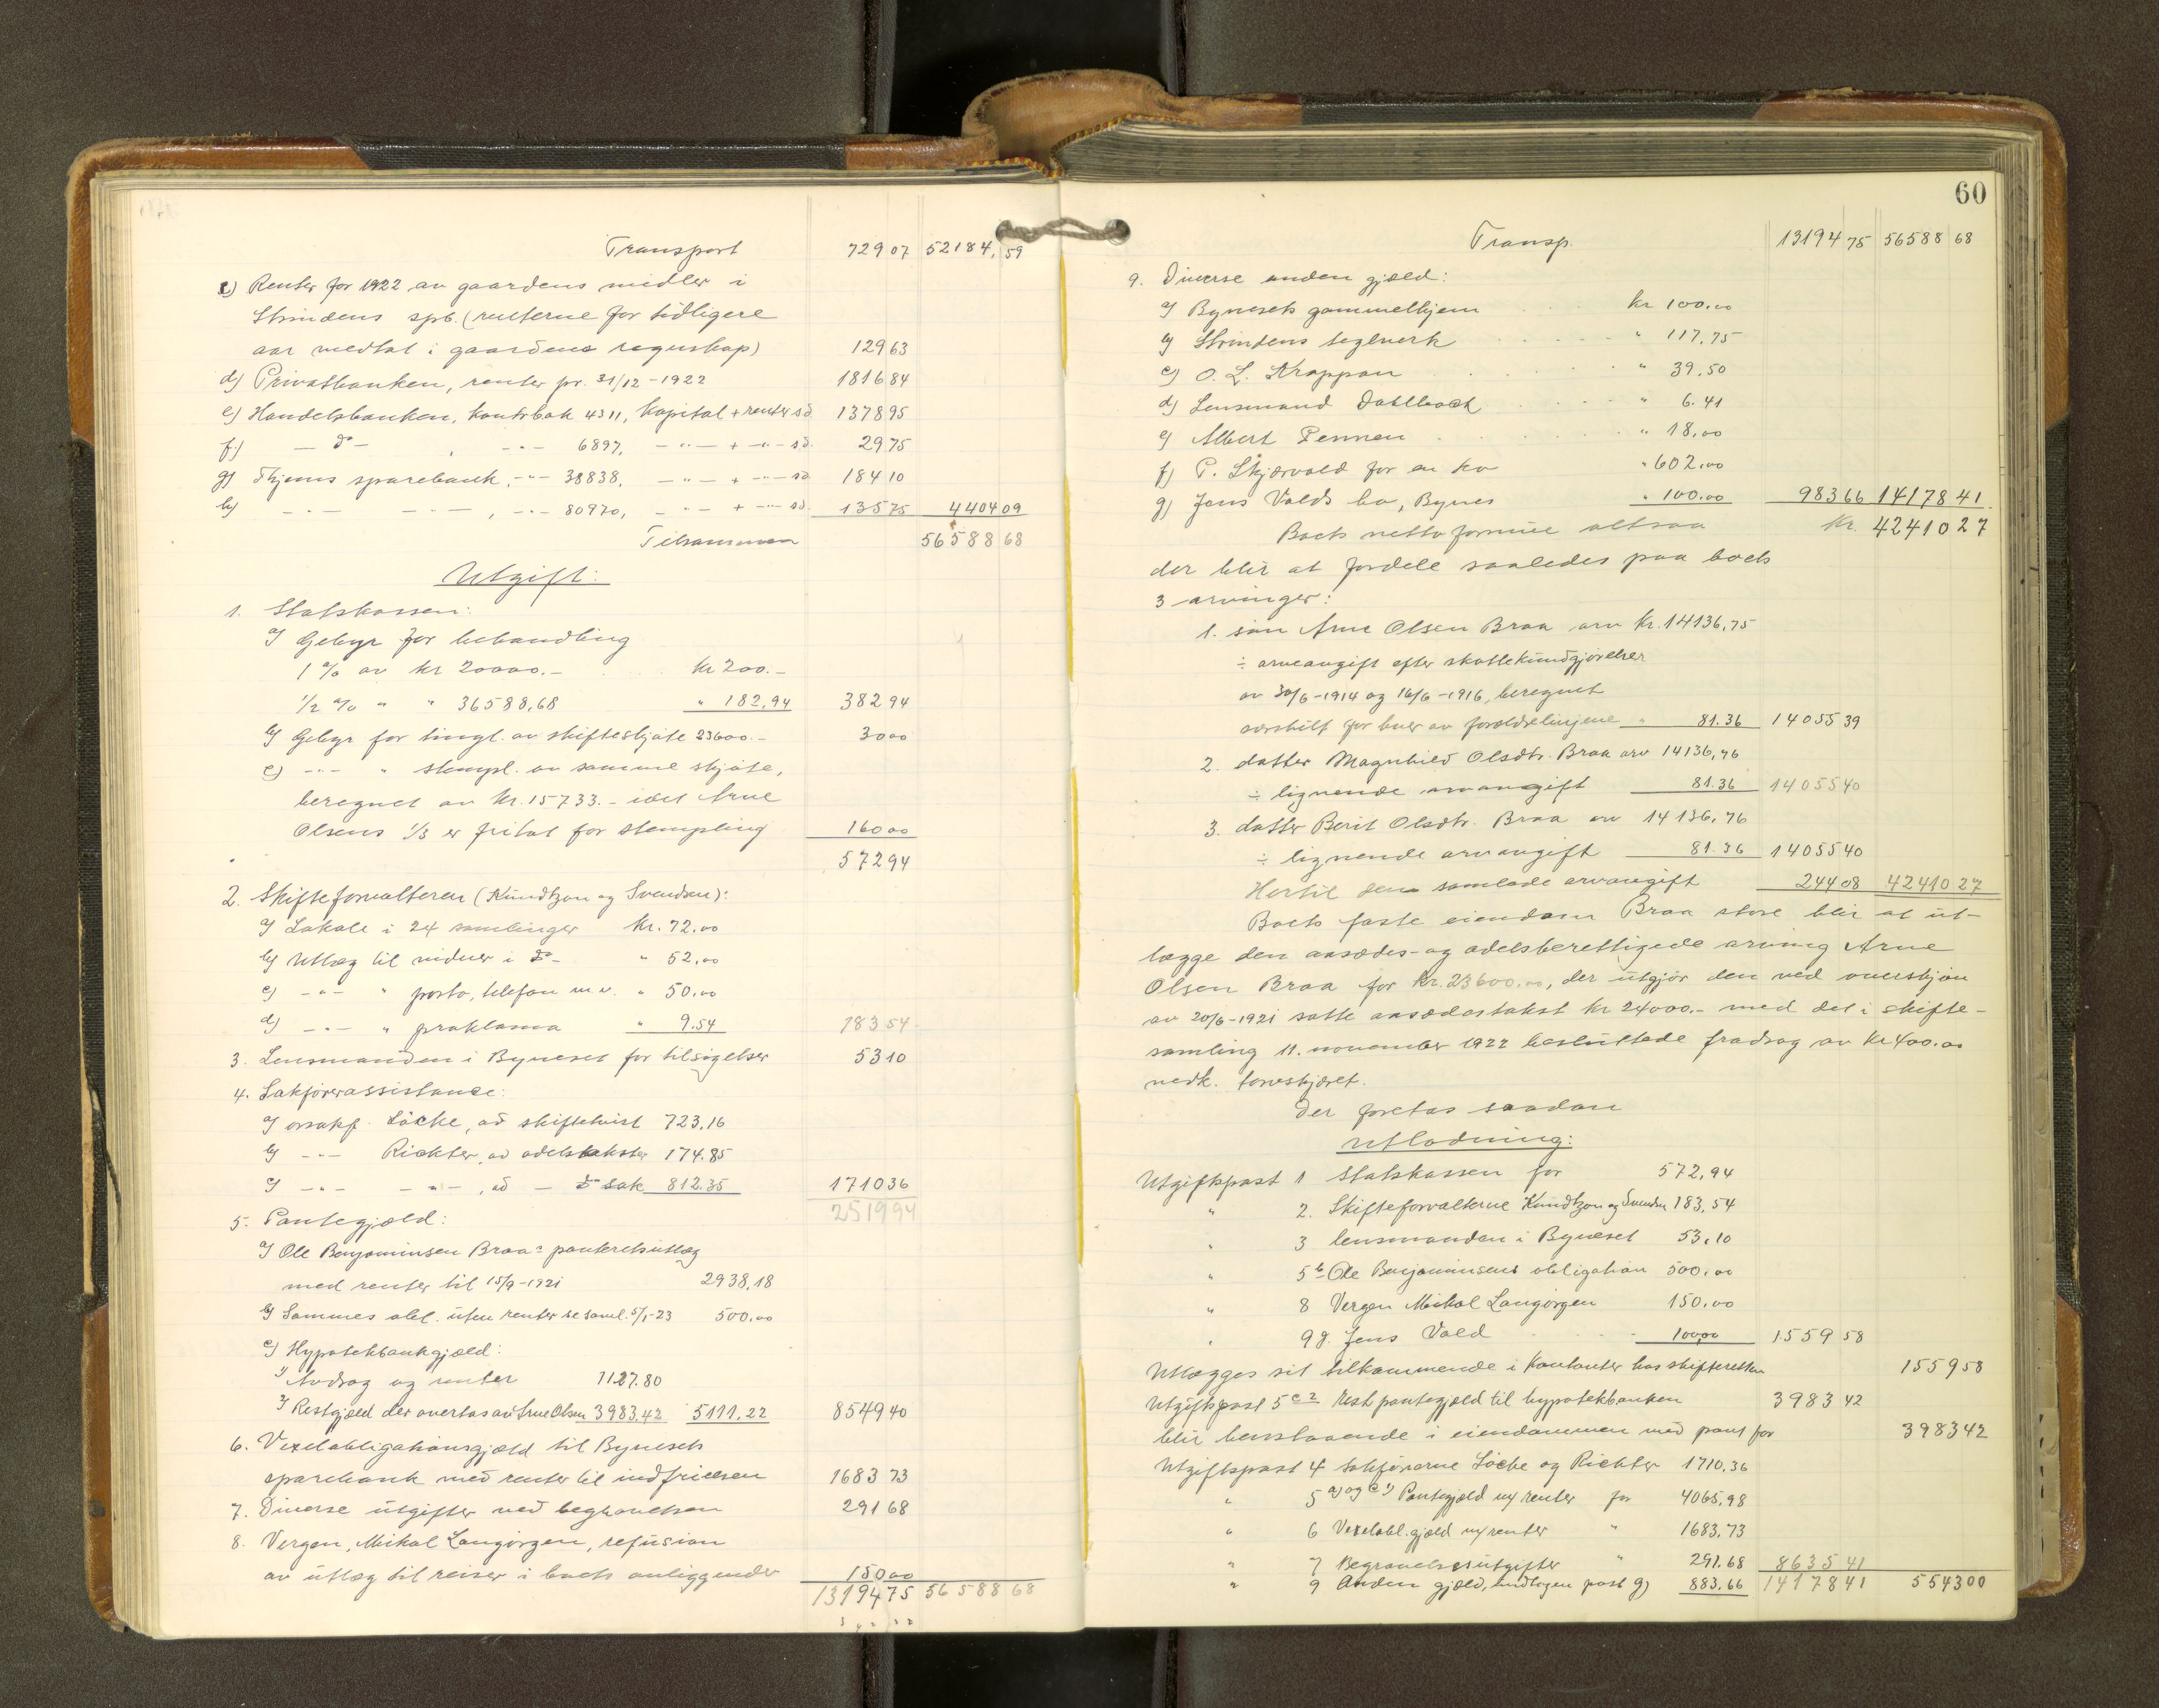 Transport 729 07 52184, 59
c) Renter for 1922 av gaardens midler i
Strindens spb. (renterne for tidligere
aar medtat i gaardens regnskap) 129 63
d) Privatbanken, renter pr. 31/12 - 1922 1816 84
e) Handelsbanken, kontrabok 4311, kapital + renter sd 1378 95
f) — do — , -"- 6897, -"- + -"- sd. 29 75
g) Thjems sparebank, -"- 38838, -"- + -"- sd 184 10
h) -"- -"- , -"- 80970, -"- + -"- sd. 135 75 4404 09
Tilsammen 56588 68
Utgift:
1. Statskassen:
a) Gebyr for behandling
1 % av kr 20000.- kr 200.-
1/2 % " " 36588,68 " 182,94 382 94
b) Gebyr for tingl. av skifteskjøte 23600.- 30 00
c) -"- " stempl. av samme skjøte,
beregnet av kr. 15733.- idet Arne
Olsens 1/3 er fritat for stempling 160 00
572 94
2. Skifteforvalteren (Kundtzon og Svendsen):
a) Lokale i 24 samlinger kr. 72,00
b) Utlæg til vidner i do - " 52,00
c) -"- " porto, telefon m.v. " 50,00
d) -"- " proklama " 9.54 183 54
3. Lensmanden i Byneset for tilsigelser 53 10
4. Sakførerassistance:
a) orsakf. Löcke, ad skiftetvist 723,16
b) -"- Richter, ad odelstakster 174.85
c) -"- -"- , ad - do sak 812.35 1710 36
2519 94
5. Pantegjæld:
a) Ole Benjaminsen Braas panteretsutlæg
med renter til 15/9 - 1921 2938,18
b) Sammes obl. uten renter se saml. 5/1-23 500,00
c) Hypotekbankgjæld:
1) Avdrag og renter 1127.80
2) Restgjæld der overtas av Arne Olsen 3983.42 5111,22 8549 40
6. Vexelobligationsgjæld til Bynesets
sparebank med renter til indfrielsen 1683 73
7. Diverse utgifter ved begravelsen 291 68
8. Vergen, Mikal Langörgen, refusion
av utlæg til reiser i boets anliggender 150 00
13194 75 56588 68
60
Transp. 13194 75 56588 68
9. Diverse anden gjæld:
a) Bynesets gammelhjem kr 100,00
b) Strindens teglverk " 117,75
c) O. L. Kroppan " 39.50
d) Lensmand Dahlback " 6.41
e) Albert Pennen " 18,00
f) P. Skjærvold for en ko " 602,00
g) Jens Volds bo, Bynes " 100.00 983 66 14178 41
Boets netto formue altsaa kr. 42410 27
der blir at fordele saaledes paa boets
3 arvinger:
1. søn Arne Olsen Braa arv kr. 14136,75
÷ arveavgift efter skattekundgjørelser
av 30/6 - 1914 og 16/6 - 1916, beregnet
særskilt for hver av forældrelinjene " 81.36 14055 39
2. datter Magnhild Olsdtr. Braa arv 14136,76
÷ lignende arveavgift 81.36 14055 40
3. datter Berit Olsdtr. Braa arv 14136,76
÷ lignende arveavgift 81.36 14055 40
Hertil den samlede arveavgift 244 08 42410 27
Boets faste eiendom Braa store blir at ut-
lægge den aasædes- og odelsberettigede arving Arne
Olsen Braa for kr. 23600.00, der utgjør den ved overskjøn
av 20/6 - 1921 satte aasædestakst kr 24000.- med det i skifte-
samling 11. november 1922 besluttede fradrag av kr 400.00
vedk. torvskjæret.
Der foretas saadan
utlodning:
Utgiftspost 1 Statskassen for 572,94
" 2. Skifteforvalterne Kundtzon og Svendsen 183,54
" 3 lensmanden i Byneset 53,10
" 5 b Ole Benjaminsens obligation 500,00
" 8 Vergen Mikal Langörgen 150,00
" 9 g. Jens Vold 100,00 1559 58
Utlægges sit tilkommende i kontanter hos skifteretten 1559 58
Utgiftspost 5 c 2 Rest pantegjæld til hypotekbanken 3983 42
blir henstaaende i eiendommen med pant for 3983 42
Utgiftspost 4 sakførerne Löcke og Richter 1710,36
" 5 a) og c 1) Pantegjæld m/ renter for 4065,98
" 6 Vexelobl. gjæld m/ renter " 1683,73
" 7 Begravelsesutgifter " 291.68 8635 41
" 9 Anden gjæld, undtagen post g) 883.66 14178 41 5543 00